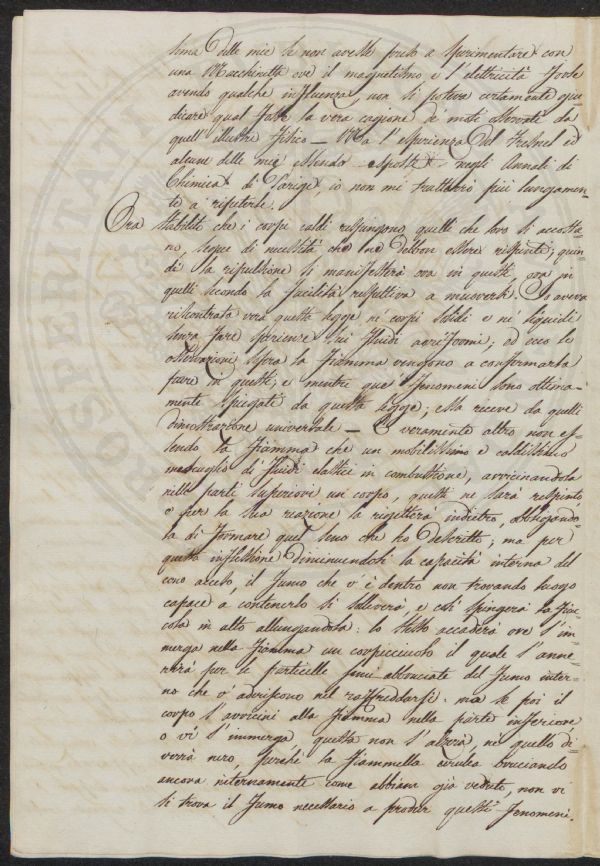 sima delle mie se non avesse preso a sperimentare con
una Macchinetta ove il magnetismo e l'elettricità forse
avendo qualche influenza, non si poteva certamente giu=
dicare qual fosse la vera cagione de moti osservati da
quell'illustre Fisico — Ma l'esperienza del Fresnel ed
alcune delle mie essendo esposte negli Annali di
Chimica di Parigi, io non mi tratterrò più lungamen=
te a ripeterle.
Ora stabilito che i corpi caldi respingono quelli che loro si accosta=
no, segue di necessità che ne debbon essere respinti; quin=
di la ripulsione si manifesterà ora in questi, ora in
quelli secondo la facilità respettiva a muoversi. Io aveva
riscontrata vera questa legge ne' corpi solidi e ne' liquidi
senza fare sperienze sui fluidi aeriformi; ed ecco le
osservazioni sopra la fiamma vengono a confermarla
pure in questi; e mentre que' fenomeni sono ottima=
mente spiegati da questa legge; essa riceve da quelli
dimostrazione universale — E veramente altro non es=
sendo la fiamma che un mobilissimo e caldissimo
mescuglio di fluidi elastici in combustione, avvicinandola
nelle parti superiori un corpo, questi ne sarà respinto,
o per la sua reazione la rigetterà indietro, obbligando=
la di formare quel seno che ho descritto; ma per
questa inflessione diminuendosi la capacità interna del
cono acceso, il fumo che v'è dentro non trovando luogo
capace a contenerlo si solleverà, e così spingerà la fiac=
cola in alto allungandola: lo stesso accaderà ove s'im=
merga nella fiamma un corpicciuolo il quale s'anne=
rirà per le particelle semi abbruciate del fumo inter=
no che v'aderiscono nel raffreddarsi. ma se poi il
corpo s'avvicini alla fiamma nella parte inferiore
o vi s'immerga questa non s'alzerà, ne quello di=
verrà nero, perché la fiammella cerulea bruciando
ancora internamente come abbiam già veduto, non vi
si trova il fumo necessario a produr questi fenomeni.
PROSPERITATI